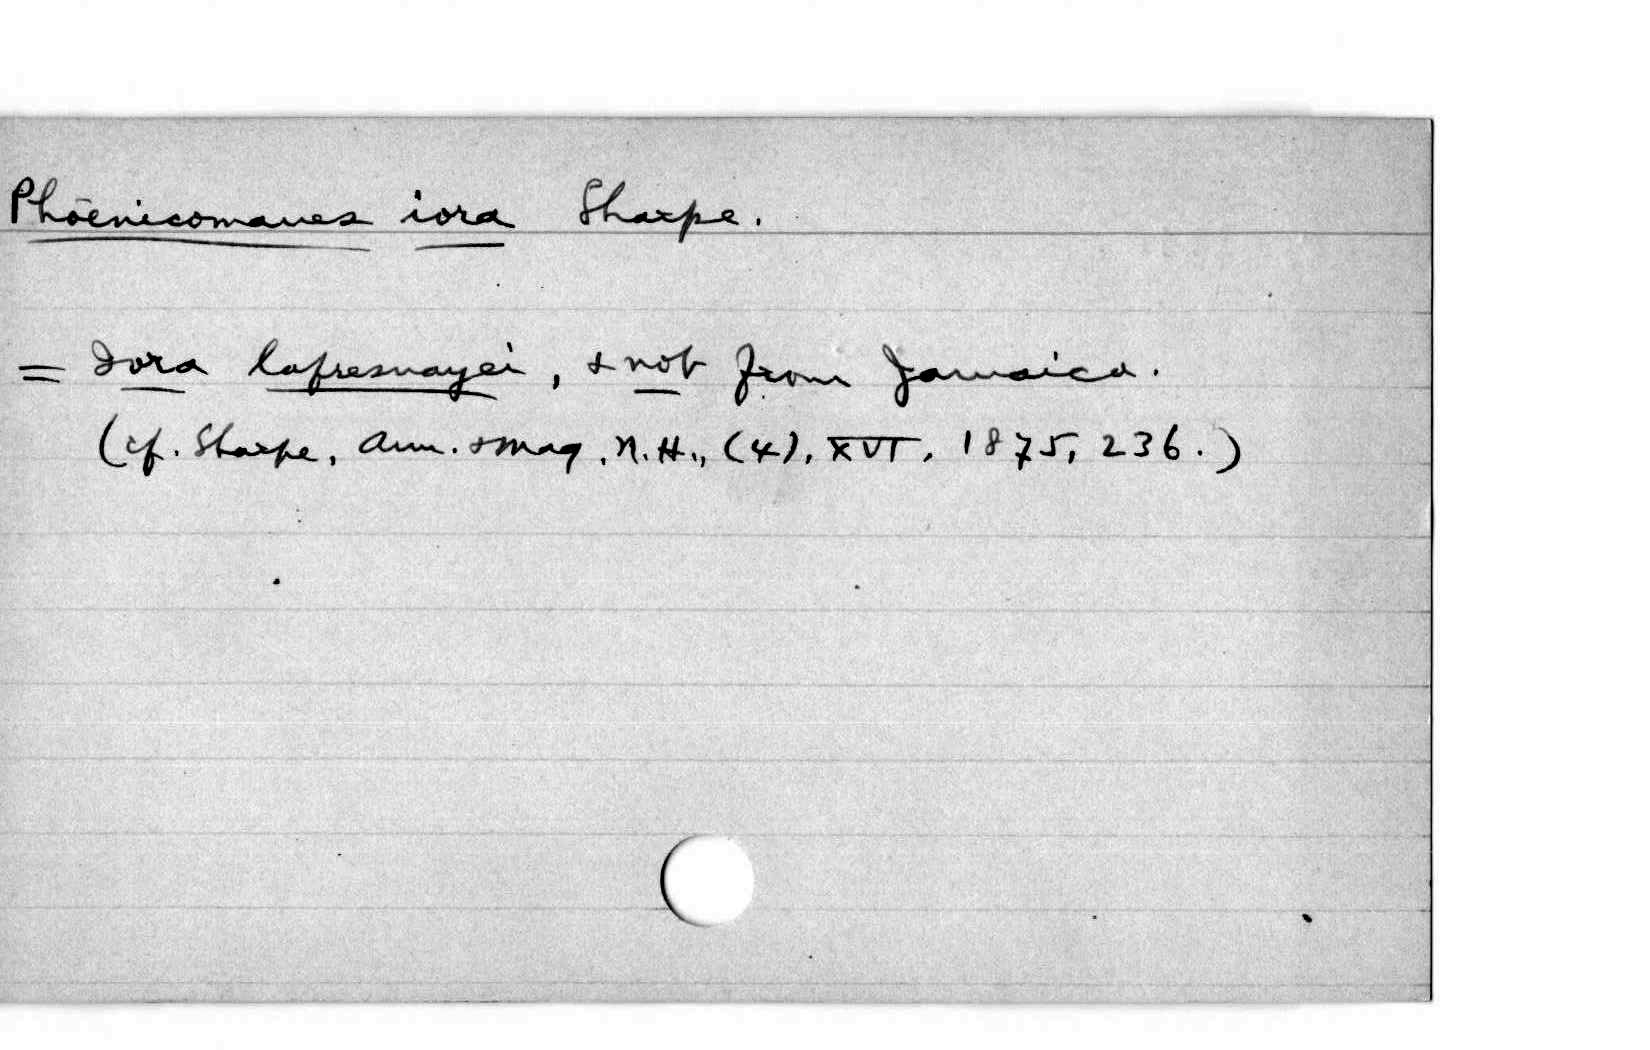 Phoenicomanes iora Sharpe.
= Iora lafresnayei, & not from Jamaica.
(cf. Sharpe, Ann. & Mag. N.H., (4), XVI, 1875, 236.)